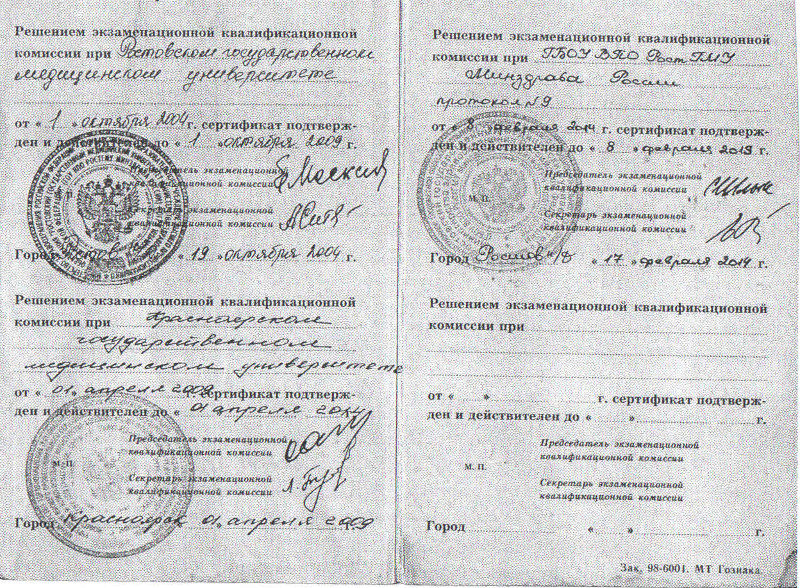 Решением экзаменационной квалификационной
комиссии при Ростовском государственном
медицинском университете
от « 1 » октября 2004 г. сертификат подтверж-
ден и действителен до « 1 » октября 2009 г.
Председатель экзаменационной
квалификационной комиссии
Секретарь экзаменационной
квалификационной комиссии
Город « 19 » октября 2004 г.
Решением экзаменационной квалификационной
комиссии при Красноярском
государственном
медицинском университете
от « 01 » апреля 2009 г. сертификат подтверж-
ден и действителен до « 01 апреля
Председатель экзаменационной
квалификационной комиссии
М. П.
Секретарь экзаменационной
квалификационной комиссии
Город Красноярск 01 апреля 2009
Решением экзаменационной квалификационной
комиссии при ГБОУ ВПО РостГМУ
Минздрава России
протокол №9
от « 8 » февраля 2014 г. сертификат подтверж-
ден и действителен до « 8 » февраля 2019 г.
Председатель экзаменационной
квалификационной комиссии
М. П.
Секретарь экзаменационной
квалификационной комиссии
Город Ростов н/Д « 17 » февраля 2014 г.
Решением экзаменационной квалификационной
комиссии при
от « » г. сертификат подтверж-
ден и действителен до « » г.
Председатель экзаменационной
квалификационной комиссии
М. П.
Секретарь экзаменационной
квалификационной комиссии
Город « » г.
Зак. 98-6001. МТ Гознака.